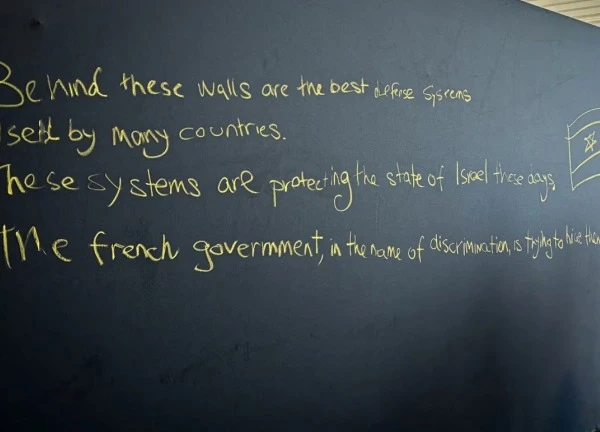 Behind these walls are the best defense Systems
used by many countries.
These systems are protecting the state of Israel these days
The french government, in the name of discrimination, is trying to hide them